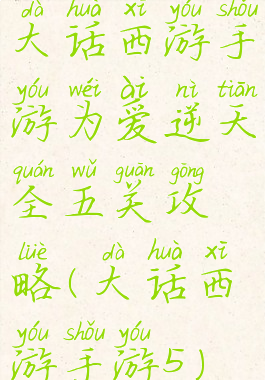 dà huà xī yóu shǒu
大话西游手
yóu wéi ài nì tiān
游为爱逆天
quán wǔ guān gōng
全五关攻
lüè dà huà xī
略(大话西
yóu shǒu yóu
游手游5)